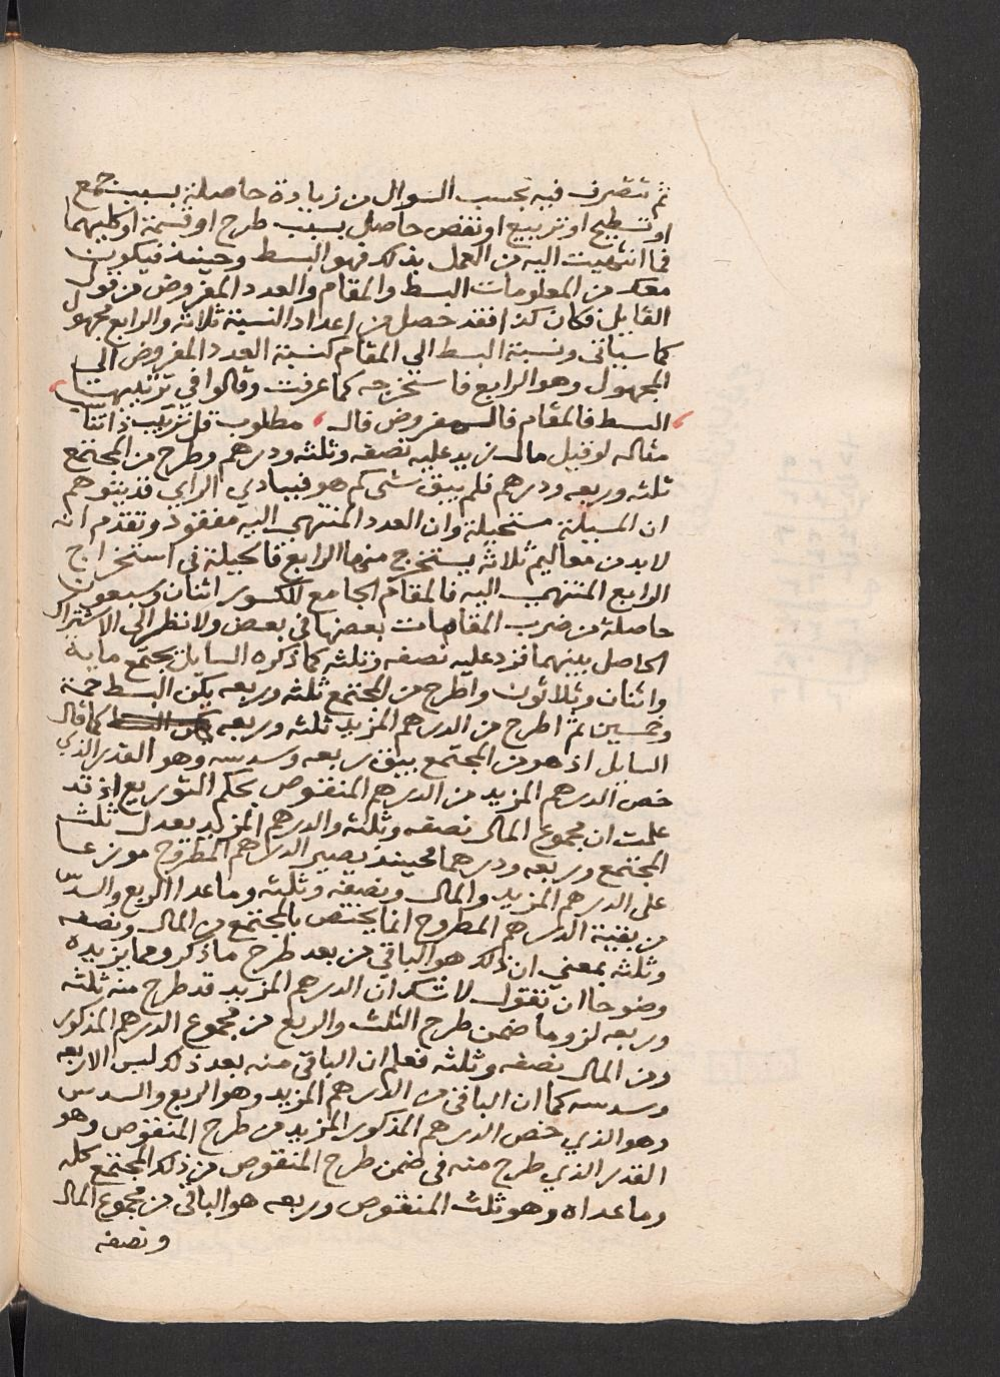 ثم تتصرف فيه بحسب السوال من زيادة حاصلة بسبب جمع
او تسطيح او تربيع او نقص حاصل بسبب طرح او قسمة او كليهما
فما انتهيت اليه من العمل بذلك فهو البسط وحينئذ فيكون
معك من المعلومات البسط والمقام والعدد المفروض من قول
القايل فكان كذا فقد حصل من اعداد النسبة ثلاثة والرابع مجهول
كما سياتى ونسبة البسط الى المقام كنسبة العدد المفروض الى
المجهول وهو الرابع فاستخرجه كما عرفت وقالوا في ترتيبها
البسط فالمقام فالمفروض قال مطلوب قل ترتيب ذا
مثاله لو قيل مال زيد عليه نصفه وثلثه ودرهم وطرح من المجتمع
ثلثه وربعه ودرهم فلم يبق شى كم هو فببادي الراي قد يتوهم
ان المسيلة مستحيلة وان العدد المنتهي اليه مفقود وتقدم انه
لا بد من معاليم ثلاثة يستخرج منها الرابع فالحيلة في استخراج
الرابع المنتهي اليه فالمقام الجامع للكسور اثنان وسبعون
حاصلة من ضرب المقامات بعضها في بعض ولا نظر الى الاشتراك
الحاصل بينهما فزد عليه نصفه وثلثه كما ذكره السايل يجتمع ماية
واثنان وثلاثون واطرح من المجتمع ثلثه وربعه يكن البسط خمسة
وخمسين ثم اطرح من الدرهم المزيد ثلثه وربعه كما قال
السايل اذ هو من المجتمع يبق ربعه وسدسه وهو القدر الذي
خص الدرهم المزيد من الدرهم المنقوص بحكم التوزيع اذ قد
علمت ان مجموع المال ونصفه وثلثه والدرهم المزيد يعدل ثلث
المجتمع وربعه ودرهما فحينئذ يصير الدرهم المطروح موزعا
على الدرهم المزيد والمال ونصفه وثلثه وما عدا الربع والسدس
من بقية الدرهم المطروح انما يختص بالمجتمع من المال ونصفه
وثلثه بمعنى ان ذلك هو الباقي من بعد طرح ما ذكر ومما يزيده
وضوحا ان تقول لا شك ان الدرهم المزيد قد طرح منه ثلثه
وربعه لزوما ضمن طرح الثلث والربع من مجموع الدرهم المذكور
ومن المال نصفه وثلثه فعلم ان الباقي منه بعد ذلك ليس الا ربعه
وسدسه كما ان الباقي من الدرهم المزيد وهو الربع والسدس
وهو الذي خص الدرهم المذكور المزيد من طرح المنقوص وهو
القدر الذي طرح منه في ضمن طرح المنقوص من ذلك المجتمع كله
وما عداه وهو ثلث المنقوص وربعه هو الباقي من مجموع المال
ونصفه